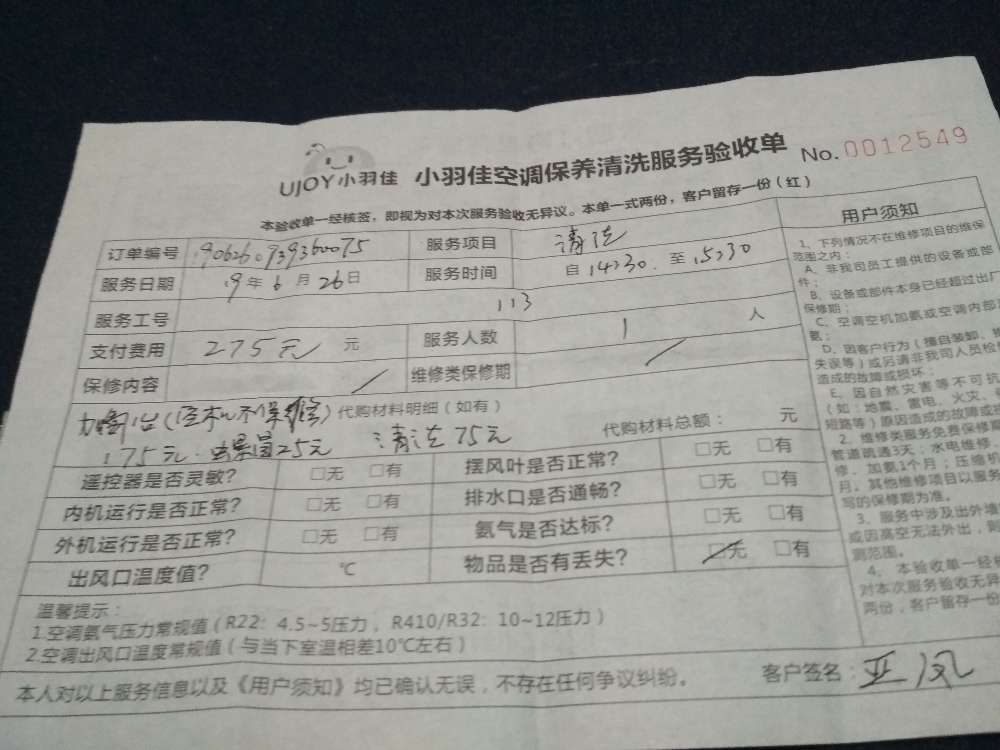 UJOY小羽佳 小羽佳空调保养清洗服务验收单 No.0012549
本验收单一经核签，即视为对本次服务验收无异议。本单一式两份，客户留存一份（红）
订单编号 190626093936 0075 服务项目 清洗
服务日期 19年6月26日 服务时间 自14:30至15:30
服务工号 113
支付费用 275元 元 服务人数 1 人
保修内容 / 维修类保修期 /
代购材料明细（如有）
175元 25元 清洗75元 代购材料总额： 元
遥控器是否灵敏？ □无 □有 摆风叶是否正常？ □无 □有
内机运行是否正常？ □无 □有 排水口是否通畅？ □无 □有
外机运行是否正常？ □无 □有 氨气是否达标？ □无 □有
出风口温度值？ ℃ 物品是否有丢失？ □无 □有
温馨提示：
1.空调氨气压力常规值（R22：4.5~5压力，R410/R32：10~12压力）
2.空调出风口温度常规值（与当下室温相差10℃左右）
本人对以上服务信息以及《用户须知》均已确认无误，不存在任何争议纠纷。 客户签名：亚凤
用户须知
1、下列情况不在维修项目的维保
范围之内：
A、非我司员工提供的设备或部
件；
B、设备或部件本身已经超过出厂
保修期；
C、空调空机加氨或空调内部
氨；
D、因客户行为（擅自装卸、
失误等）或另请非我司人员检
造成的故障或损坏；
E、因自然灾害等不可抗
（如：地震、雷电、火灾、
短路等）原因造成的故障或
2、维修类服务免费保修
管道疏通3天；水电维修
修、加氨1个月；压缩机
月。其他维修项目以服务
写的保修期为准。
3、服务中涉及出外墙
或因高空无法外出，则
测范围。
4、本验收单一经核
对本次服务验收无异
两份，客户留存一份